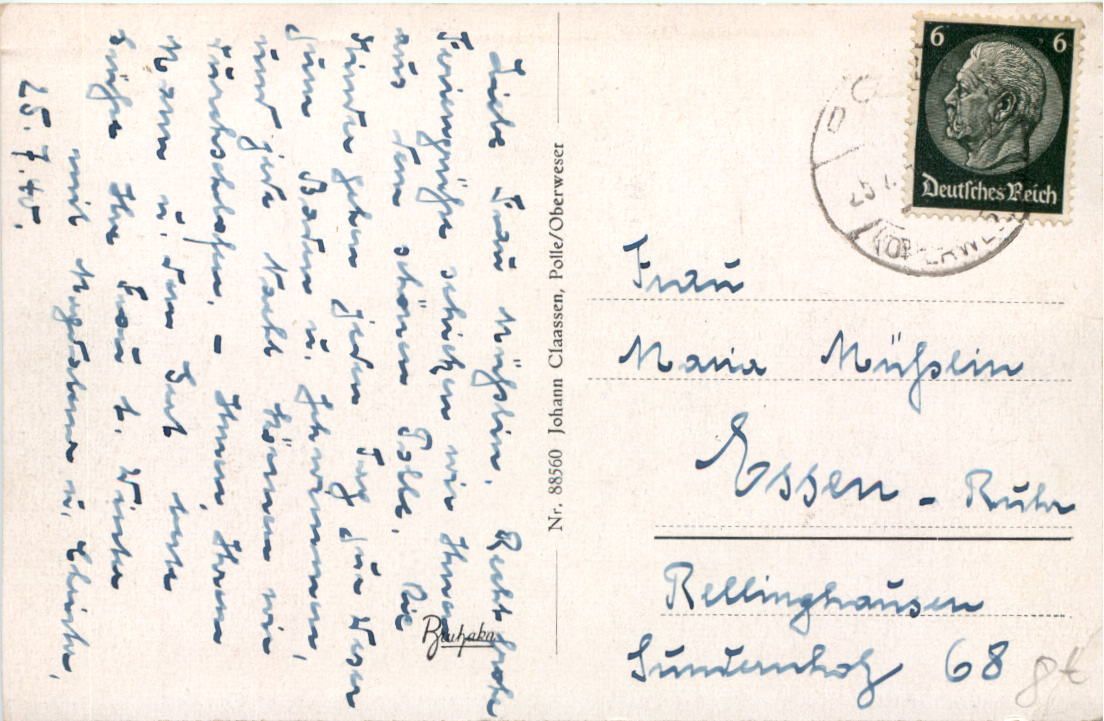 Liebe Frau Mühslin. Recht frohe
Feriengrüße schicken wir Ihnen
aus dem schönen Polle. Die
Kinder gehen jeden Tag zur Weser
zum Baden u. Schwimmen,
und jede Nacht können wir
durchschlafen. – Ihnen, Ihrem
Mann u. dem Gert beste
Grüße Ihre Frau
mit Magdalena u. Christa.
25.7.40.
Bruhaka
Nr. 88560 Johann Claassen, Polle/Oberweser
6 6
Deutsches Reich
Frau
Maria Mühslin
Essen - Ruhr
Rellinghausen
Sundernholz 68